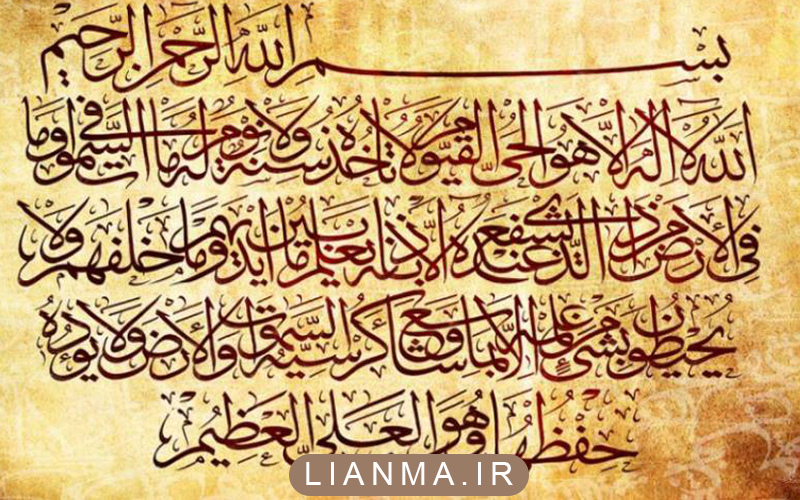 بسم الله الرحمن الرحيم
الله لا اله الا هو الحي القيوم لا تأخذه سنة ولا نوم له ما في السموات وما
في الارض من ذا الذي يشفع عنده الا باذنه يعلم ما بين ايديهم وما خلفهم ولا
يحيطون بشيء من علمه الا بما شاء وسع كرسيه السموات والارض ولا يؤده
حفظهما وهو العلي العظيم
LIANMA.IR